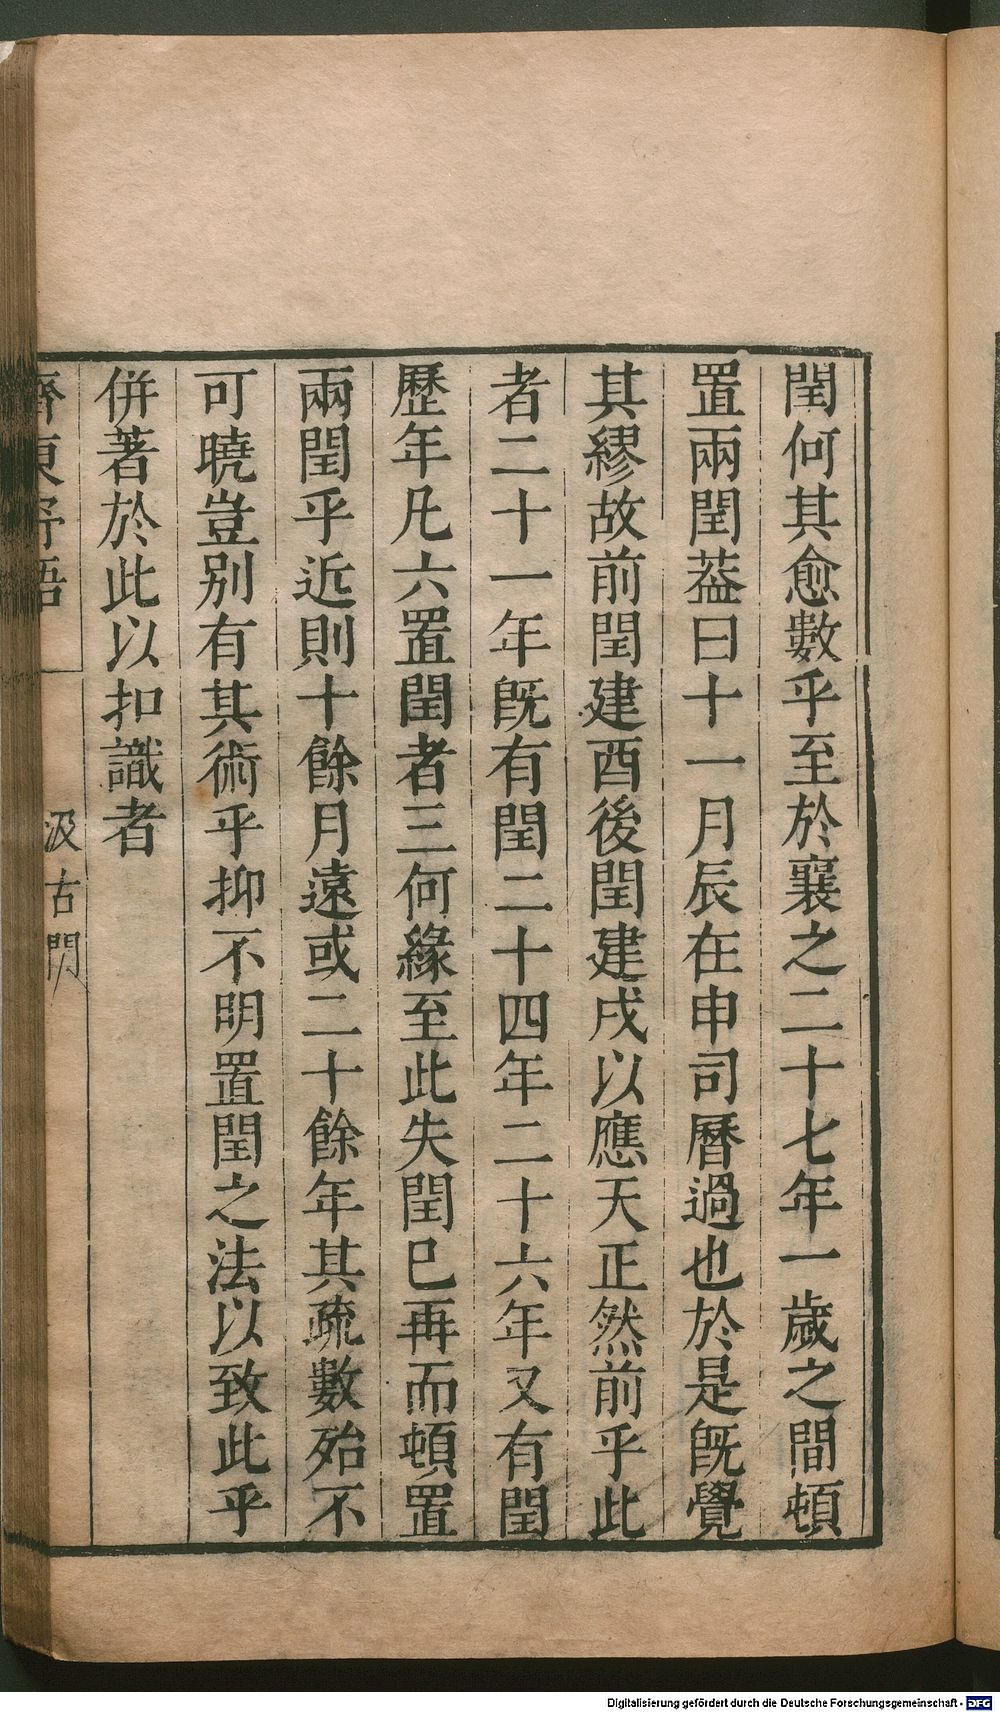 閏何其愈數乎至於襄之二十七年一歲之間頓
置兩閏葢曰十一月辰在申司曆過也於是旣覺
其繆故前閏建酉後閏建戌以應天正然前乎此
者二十一年旣有閏二十四年二十六年又有閏
歷年凡六置閏者三何緣至此失閏巳再而頓置
兩閏乎近則十餘月遠或二十餘年其疏數殆不
可曉豈别有其術乎抑不明置閏之法以致此乎
併著於此以扣識者
齊東野語
汲古閣
Digitalisierung gefördert durch die Deutsche Forschungsgemeinschaft - DFG